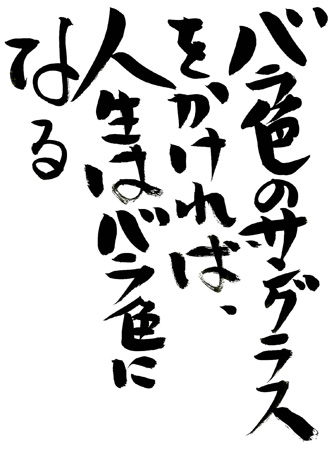 バラ色のサングラス
をかければ、
人生はバラ色に
なる